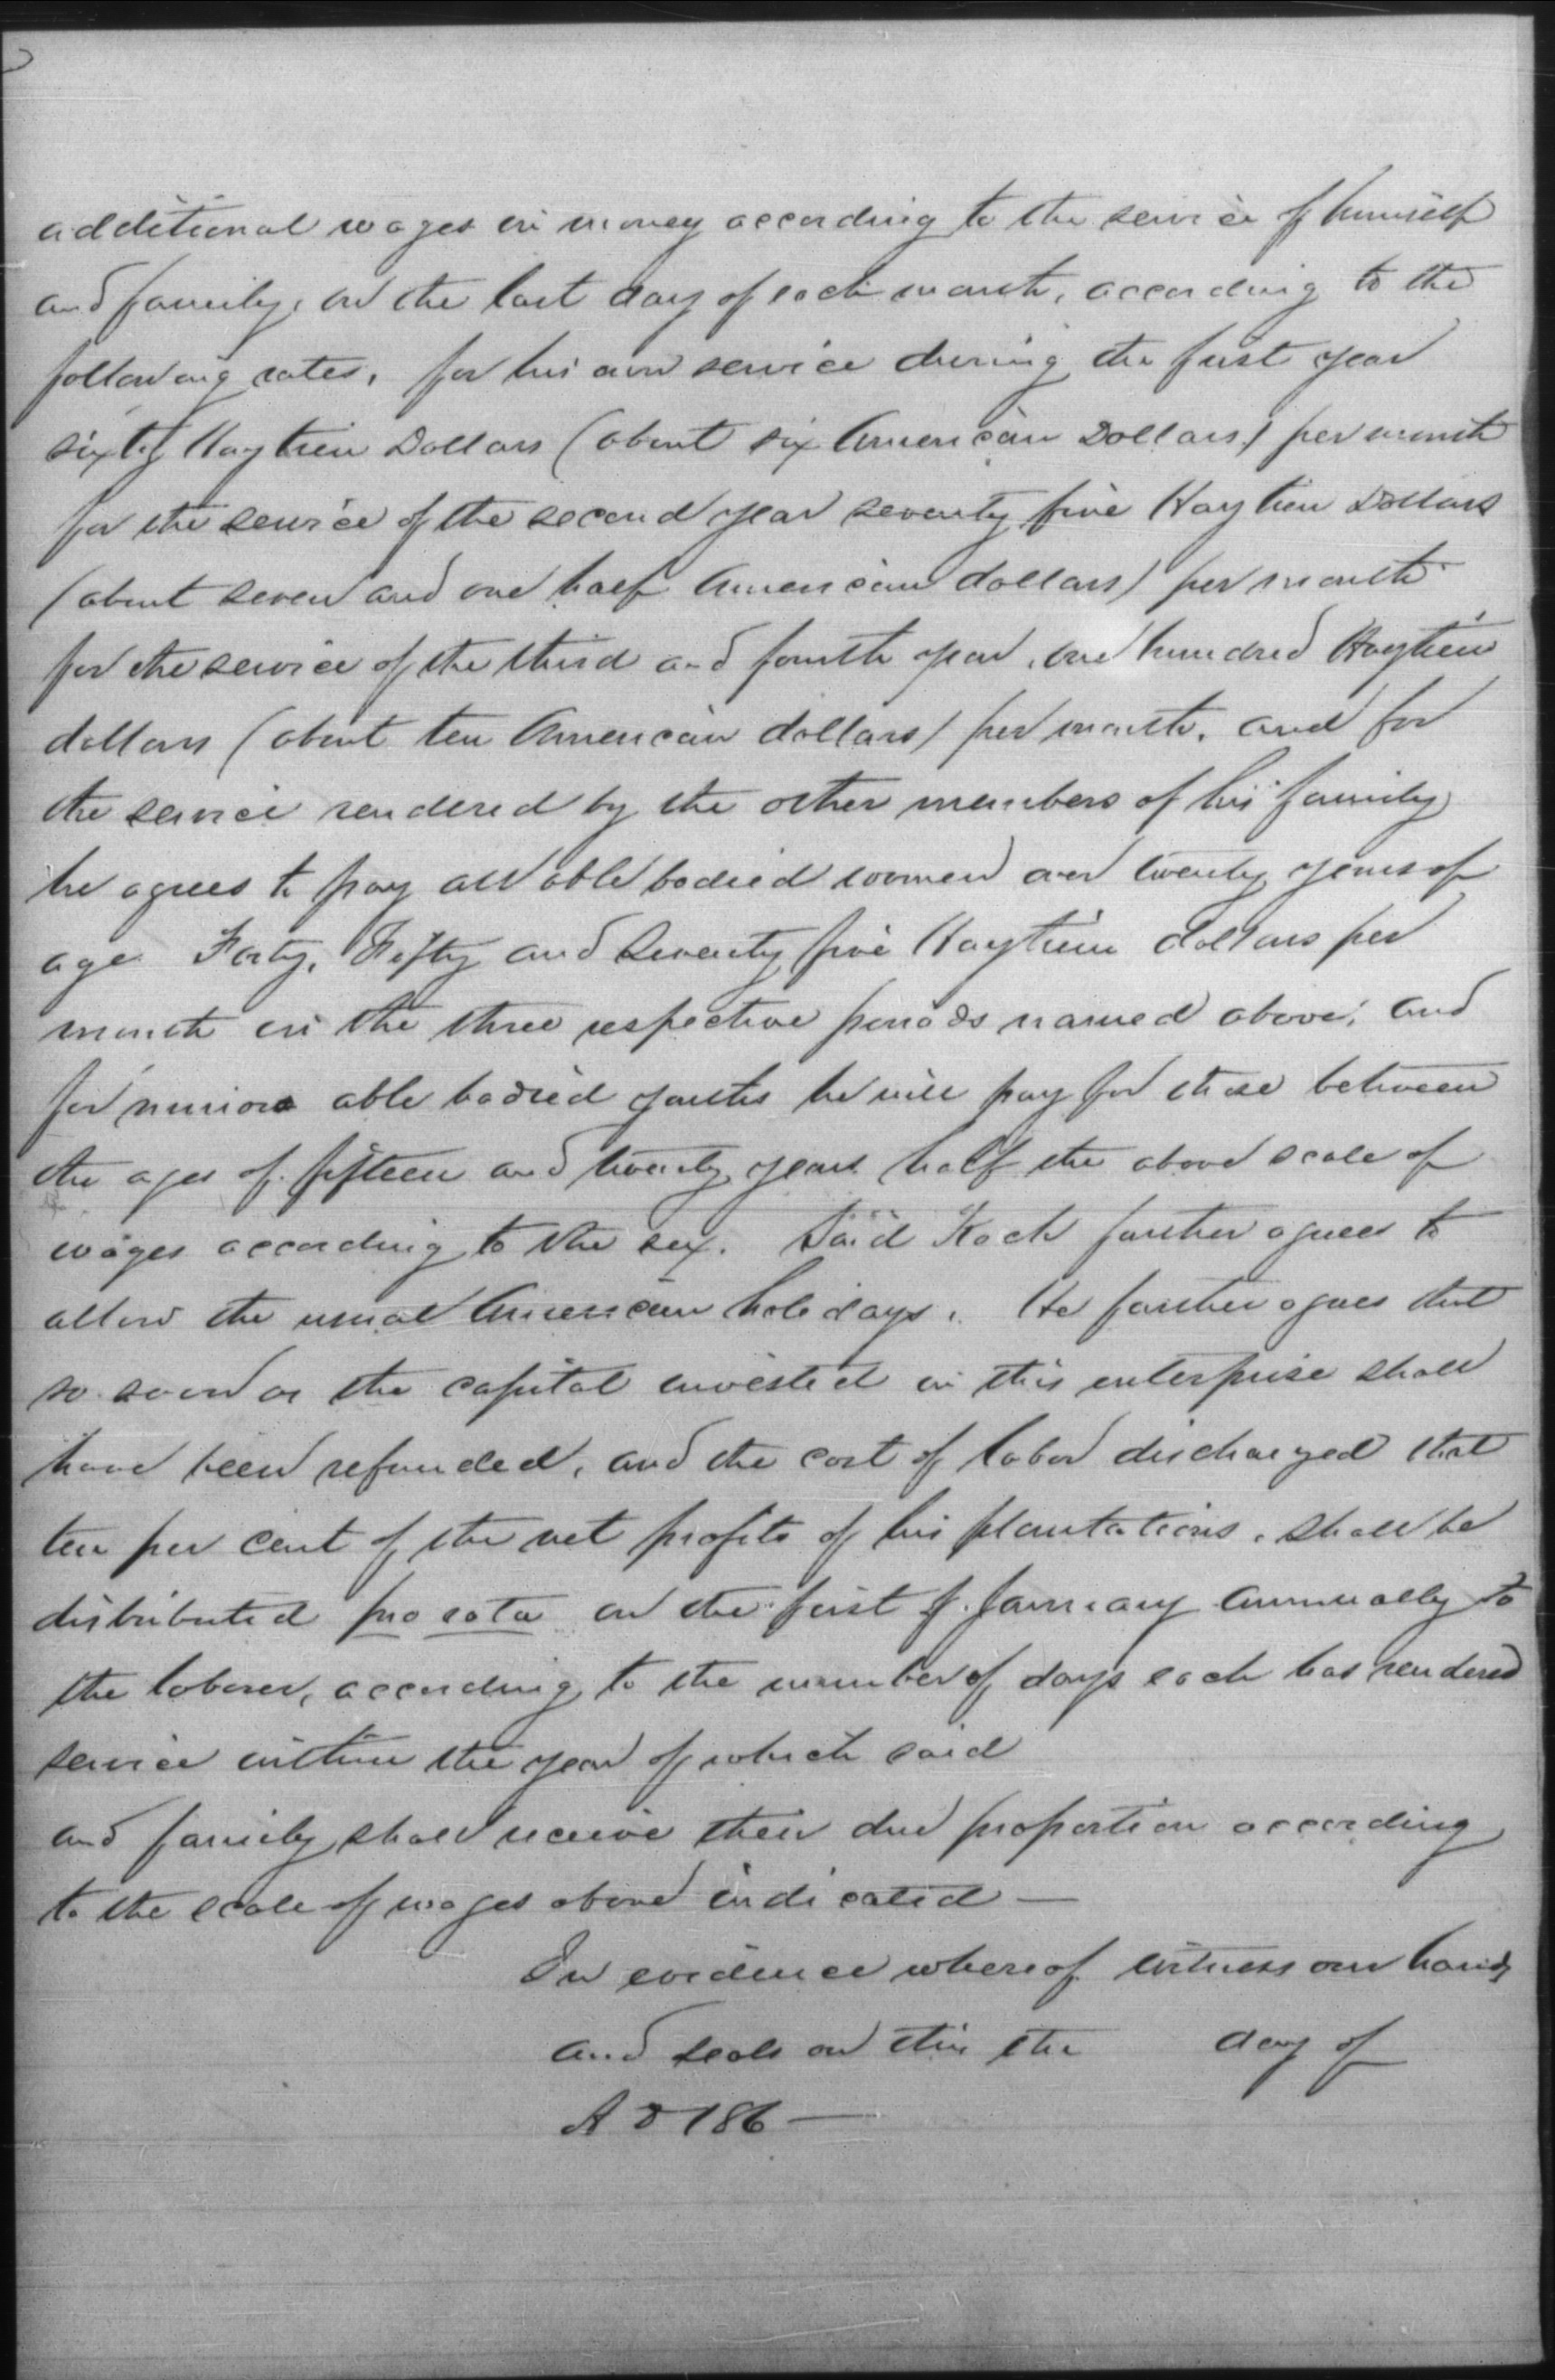 additional wages in money according to the service of himself
and family, on the last day of each month, according to the
following rates, for his own service during the first year
sixty Haytien Dollars (about six American Dollars) per month
for the service of the second year seventy five Haytien Dollars
(about seven and one half American dollars) per month
for the service of the third and fourth year, one hundred Haytien
dollars (about ten American dollars) per month, and for
the service rendered by the other members of his family
he agrees to pay all able bodied women over twenty years of
age Forty, Fifty and Seventy five Haytien dollars per
month in the three respective periods named above, and
for minors able bodied youths he will pay for those between
the ages of fifteen and twenty years half the above scale of
wages according to the sex. Said Kock further agrees to
allow the usual American holidays. He further agrees that
so soon as the capital invested in this enterprise shall
have been refunded, and the cost of labor discharged that
ten per cent of the net profits of his plantations, shall be
distributed pro rata on the first of January annually to
the laborer, according to the number of days each has rendered
service within the year of which said
and family shall receive their due proportion according
to the scale of wages above indicated —
In evidence whereof witness our hands
and seals on this the day of
A D 186—